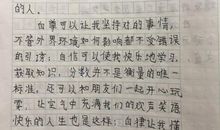 的人。
自尊可以让我坚持对的事情，
不管外界环境如何影响都不受错误
的引诱；自信可以使我快乐地学习，
获取知识，分数并不是衡量的唯一
标准，还可以和朋友们一起开心玩
耍，让空气中充满我们的欢声笑语
快乐的人生也是这样；自律让我懂